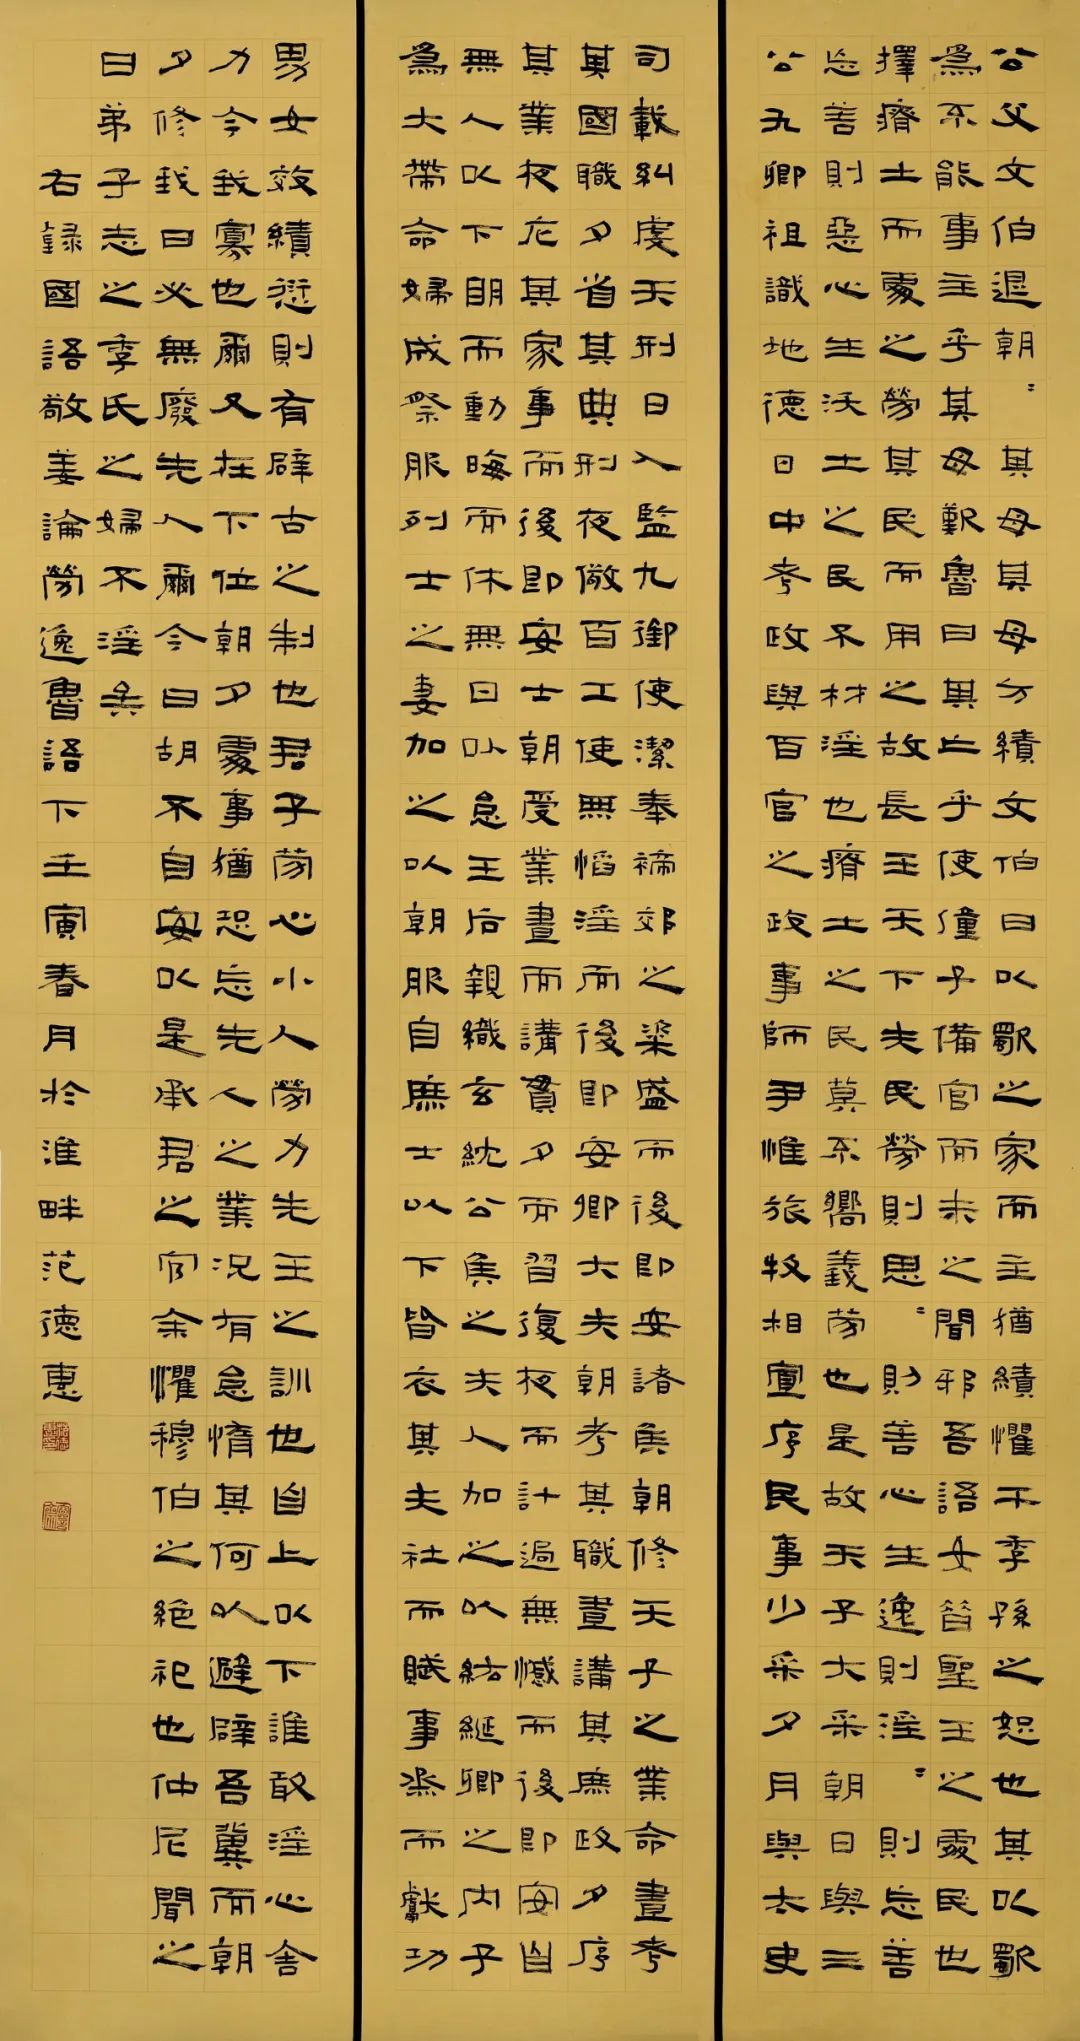 公父文伯退朝〻其母其母方績文伯曰以歜之家而主猶績懼干季孫之恕也其以歜
爲不能事主乎其母歎魯曰其亡乎使僮子備官而未之聞邪吾語女昔聖王之處民也
擇瘠土而處之勞其民而用之故長王天下夫民勞則思〻則善心生逸則淫〻則忘善
忘善則惡心生沃土之民不材淫也瘠土之民莫不嚮義勞也是故天子大采朝日與三
公九卿祖識地德日中考政與百官之政事師尹惟旅牧相宣序民事少采夕月與太史
司載糾虔天刑日入監九御使潔奉禘郊之粢盛而後即安諸侯朝修天子之業命晝考
其國職夕省其典刑夜儆百工使無慆淫而後即安卿大夫朝考其職晝講其庶政夕序
其業夜庀其家事而後即安士朝受業晝而講貫夕而習復夜而計過無憾而後即安自
無人以下明而動晦而休無日以怠王后親織玄紞公侯之夫人加之以紘綖卿之內子
爲大帶命婦成祭服列士之妻加之以朝服自庶士以下皆衣其夫社而賦事烝而獻功
男女效績愆則有辟古之制也君子勞心小人勞力先王之訓也自上以下誰敢淫心舍
力今我寡也爾又在下位朝夕處事猶恐忘先人之業況有怠惰其何以避辟吾冀而朝
夕修我曰必無廢先人爾今曰胡不自安以是承君之官余懼穆伯之絕祀也仲尼聞之
曰弟子志之季氏之婦不淫矣
右錄國語敬姜論勞逸魯語下壬寅春月於淮畔范德惠